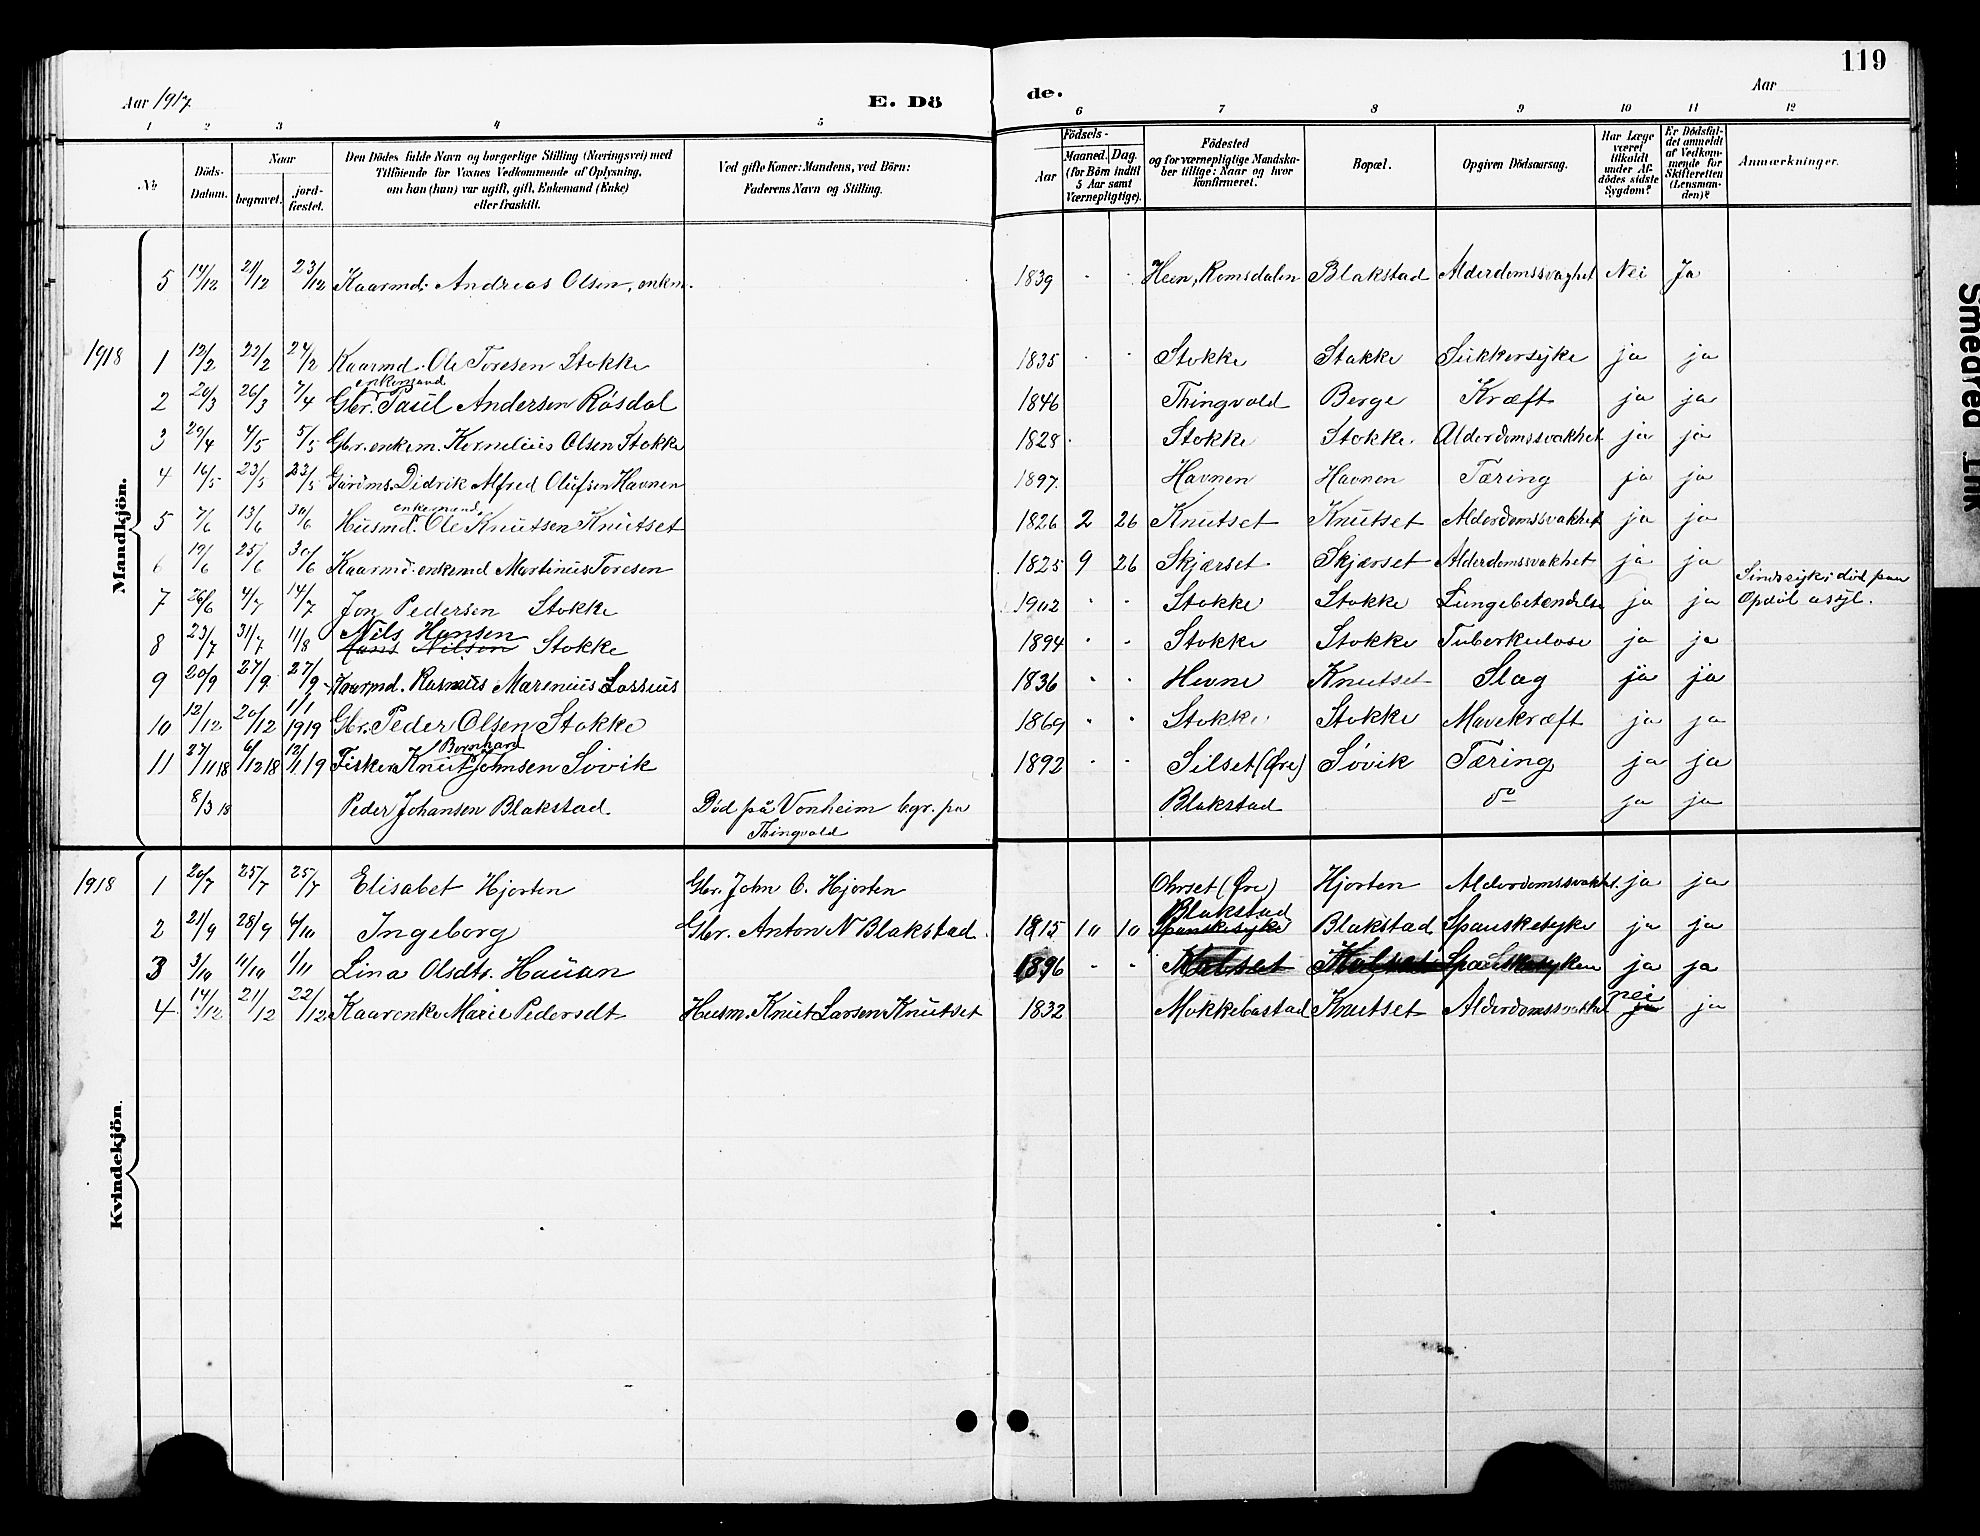 119
Aar 1917.
E. Dö
de.
Aar
1 2 3 4 5 6 7 8 9 10 11 12
No
Döds-Datum.
Naar
begravet.
jord-fæstet.
Den Dödes fulde Navn og borgerlige Stilling (Næringsvei) med
Tilföiende for Voxnes Vedkommende af Oplysning,
om han (hun) var ugift, gift, Enkemand (Enke)
eller fraskilt.
Ved gifte Koner: Mandens, ved Börn:
Faderens Navn og Stilling.
Födsels-
Aar
Maaned. Dag.
(for Börn indtil
5 Aar samt
Værnepligtige).
Födested
og for værnepligtige Mandska-
ber tillige: Naar og hvor
konfirmeret.
Bopæl.
Opgiven Dödsaarsag.
Har Læge
været
tilkaldt
under Af-
dödes sidste
Sygdom?
Er Dödsfal-
det anmeldt
af Vedkom-
mende for
Skifteretten
(Lensman-
den)?
Anmærkninger.
Mandkjön.
5 14/12 21/12 23/12 Kaarmd. Andreas Olsen, enkm. 1839 " " Heen, Romsdalen Blakstad Alderdomssvaghet Nei Ja
1918 1 12/2 22/2 24/2 Kaarmd. Ole Toresen Stokke 1835 " " Stokke Stokke Sukkersyke ja ja
enkemand
2 20/3 26/3 7/4 Gbr. Paul Andersen Røsdal 1846 Thingvold Berge Kræft ja ja
3 29/4 4/5 5/5 Gbr. enkem. Kornelius Olsen Stokke 1828 Stokke Stokke Alderdomssvakhet ja ja
4 16/5 23/5 23/5 Didrik Alfred Olufsen Havnen 1897 Havnen Havnen Tæring ja ja
enkemand
5 7/6 13/6 30/6 Husmd. Ole Knutsen Knutset 1826 2 26 Knutset Knutset Alderdomssvakhet ja ja
6 19/6 25/6 30/6 Kaarmd. enkemd Martinus Toresen 1825 9 26 Skjærset Skjærset Alderdomssvakhet ja ja
7 26/6 4/7 14/7 Jon Pedersen Stokke 1902 " " Stokke Stokke Lungebetændelse ja ja Sindssyk; død paa
Opdøl asyl.
Nils Hansen
8 23/7 31/7 11/8 Hans Nilsen Stokke 1894 " " Stokke Stokke Tuberkulose ja ja
9 20/9 27/9 27/9 Kaarmd. Rasmus Marenius Lossius 1836 " " Hevne Knutset Slag ja ja
10 12/12 20/12 1/1 1919 Gbr. Peder Olsen Stokke 1869 " " Stokke Stokke Mavekræft ja ja
Bernhard
11 27/11 18 6/12 18 12/1 19 Fisker Knut Johnsen Søvik 1892 " " Silset (Øre) Søvik Tæring ja ja
8/3 18 Peder Johansen Blakstad Død på Vonheim bgr. pa Blakstad do ja ja
Thingvold
Kvindekjön.
1918 1 20/7 25/7 25/7 Elisabet Hjorten Gbr. John O. Hjorten Ohrset (Øre) Hjorten Alderdomssvakhet. ja ja
Blakstad
2 21/9 28/9 6/10 Ingeborg Gbr. Anton N Blakstad. 1915 10 10 Spanskesyke Blakstad Spanskesyke ja ja
3 3/10 11/10 1/11 Lina Olsdtr. Hauan 1896 " " ja ja
nei
4 14/12 21/12 22/12 Kaarenke Marie Pedersdt Husm. Knut Larsen Knutset 1832 Mokkebustad Knutset Alderdomssvakhet ja ja
Smeared Ink